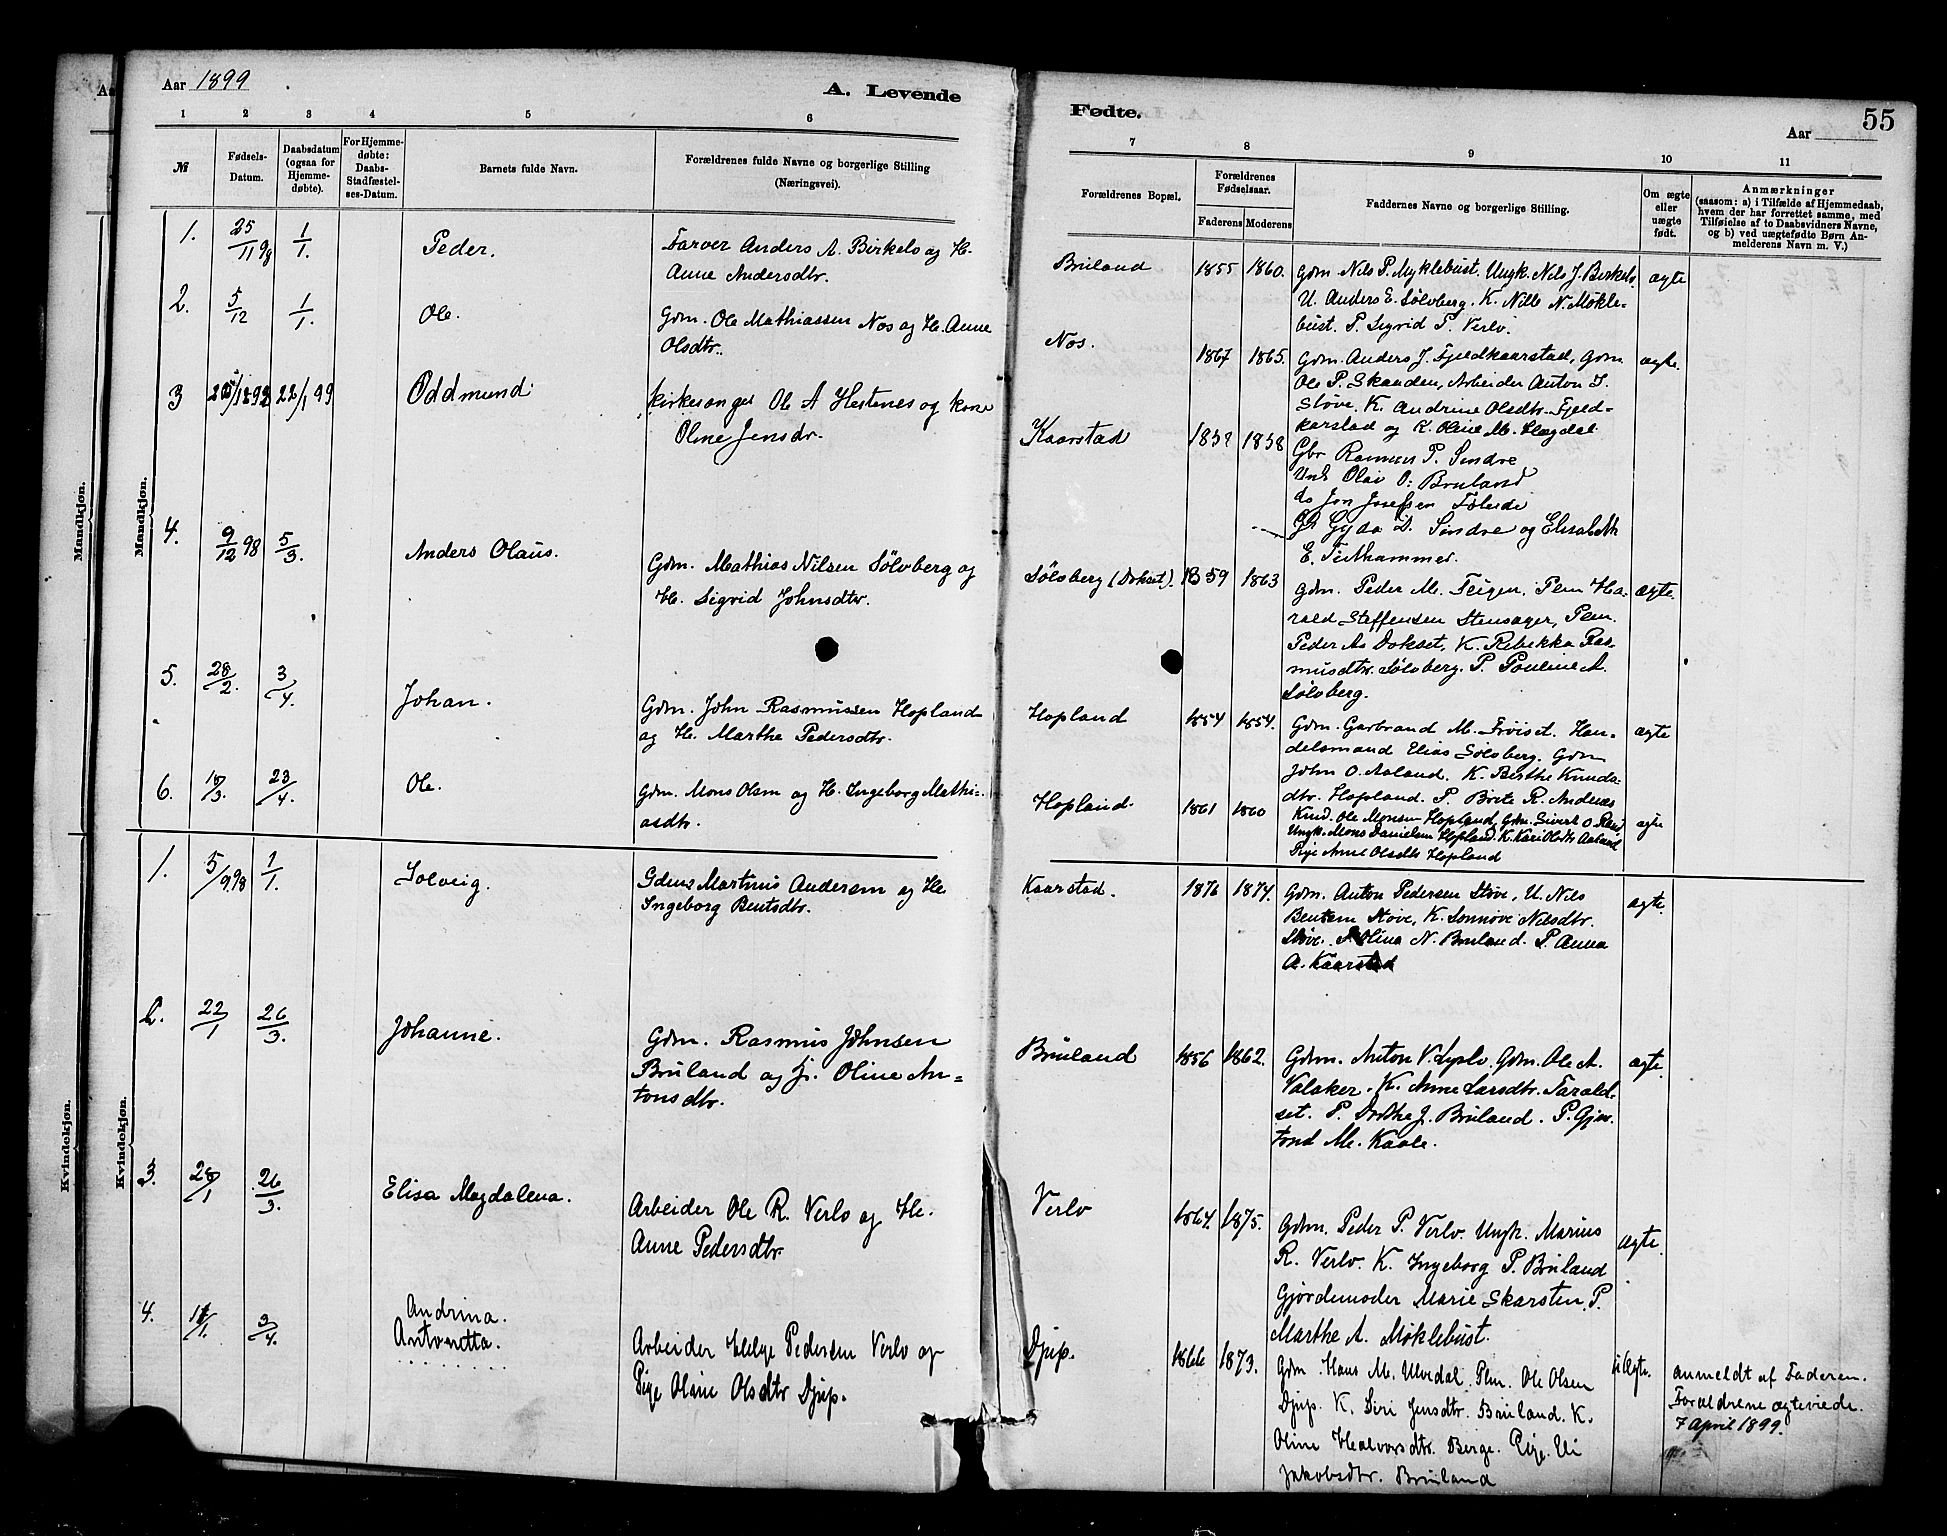 Aar 1899
A. Levende
Fødte.
Aar
55
1 2 3 4 5 6 7 8 9 10 11
№
Fødsels-
Datum.
Daabsdatum
(ogsaa for
Hjemme-
døbte).
For Hjemme-
døbte:
Daabs-
Stadfæstel-
ses-Datum.
Barnets fulde Navn.
Forældrenes fulde Navne og borgerlige Stilling
(Næringsvei).
Forældrenes Bopæl.
Forældrenes
Fødselsaar.
Faderens Moderens
Faddernes Navne og borgerlige Stilling.
Om ægte
eller
uægte
født.
Anmærkninger
(saasom: a) i Tilfælde af Hjemmedaab,
hvem der har forrettet samme, med
Tilføielse af to Daabsvidners Navne,
og b) ved uægtefødte Børn An-
melderens Navn m. V.)
Mandkjøn.
Mandkjøn.
1. 25/11 98 1/1. Peder.
Farver Anders A. Birkelo og H.
Anne Andersdtr.
Bruland 1855 1860.
Gdm. Nils P. Myklebust. Ungk. Nils J. Birkelo
U. Anders E. Sølvberg. K. Nille N. Møkle-
bust. P. Sigrid P. Verlo.
ægte
2. 5/12 1/1. Ole.
Gdm. Ole Mathiassen Nos og H. Anne
Olsdtr.
Nos. 1867 1865.
Gdm. Anders J. Fjeldkaarstad, Gdm.
Ole P. Skanden, Arbeider Anton I.
Støve. K. Andrine Olsdtr. Fjeld-
karstad og K. Oline M. Hægdal.
ægte.
3 22/1 99 Oddmund
Kirkesanger Ole A Hestenes og kone
Oline Jensdr.
Kaarstad 1858
Gbr Rasmus P. Sindre
Unk Olai O. Bruland
do Jon Josefsen
Gyda D. Sindre og Elisabeth
E.
4. 9/12 98 5/3. Anders Olaus.
Gdm. Mathias Nilsen Sølvberg og
H. Sigrid Johnsdtr.
Sølvberg (Dokset). 1859 1863
Gdm. Peder M. Teigen, Plm Ha-
rald Steffensen Stensager, Plm.
Peder As Dokset, K. Rebekka Ras-
musdtr. Sølvberg. P. Pauline A.
Sølvberg.
ægte.
5. 28/2. 3/4. Johan.
Gdm. John Rasmussen Hopland
og H. Marthe Pedersdtr.
Hopland 1854 1854.
Gdm. Garbrand M. Frøiset. Han-
delsmand Elias Sølvberg. Gdm
John O. Aaland. K. Berthe Knuds-
dtr. Hopland. P. Brite R. Andenæs
ægte
6. 18/3. 23/4. Ole.
Gdm. Mons Olsen og H. Ingeborg Mathi-
asdtr.
Hopland. 1861 1860
Ole Monsen Hopland, Gdm. Sivert O.
Ungk. Mons Danielsen Hopland. K. Kari Olsdtr Aaland
Pige Anne Olsdtr Hopland
ægte
Kvindekjøn.
Kvindekjøn.
1. 5/9 98 1/1. Solveig.
Martinus Andersen og H.
Ingeborg Bentsdtr.
Kaarstad. 1876 1874.
Gdm. Anton Pedersen Støve, U. Nils
Bentsen Støve, K. Sønnøve Nilsdtr.
Støve. Olina N. Bruland. P. Anna
A. Kaarstad
ægte.
2. 22/1 26/3. Johanne.
Gdm. Rasmus Johnsen
Bruland og H. Oline An-
tonsdtr.
Bruland 1856 1862.
Gdm. Anton V. Lyslo. Gdm. Ole A.
Valaker. K. Anne Larsdtr. Tarald-
set. P. Dorthe J. Bruland. P. Gjer-
trud M. Kaale.
ægte.
3. 28/1 26/3. Elisa Magdalena.
Arbeider Ole R. Verlo og H.
Anne Pedersdtr.
Verlo 1864. 1875.
Gdm. Peder P. Verlo. Ungk. Marius
R. Verlo. K. Ingeborg P. Bruland
Gjordemoder Marie Skarsten. P.
Marthe A. Møklebust.
Ægte.
4. 3/4. Andrina.
Antonetta.
Arbeider Helge Pedersen Verlo og
Pige Oline Olsdtr Djup.
Djup. 1866 1873.
Gdm. Hans M. Ulvedal. Plm. Ole Olsen
Djup. K. Siri Jensdtr. Bruland. K.
Oline Halvorsdtr. Berge. Pige. Eli
Jakobsdtr. Bruland
uÆgte.
Anmeldt af Faderen.
Forældrene ægteviede
7 April 1899.